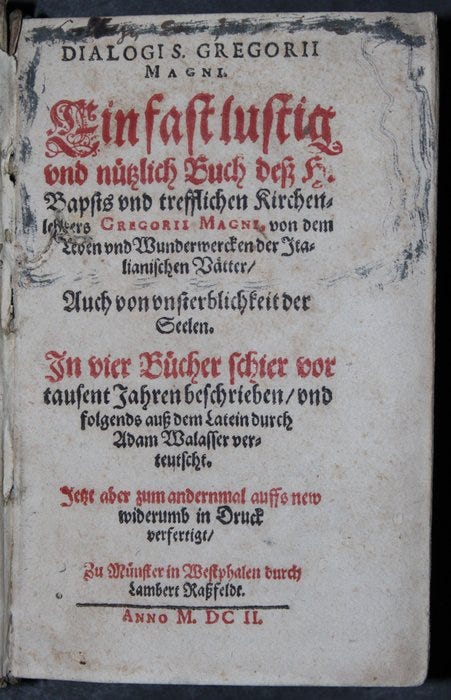 DIALOGI S. GREGORII
MAGNI.
Ein fast lustig
vnd nützlich Buch deß H.
Bapsts vnd trefflichen Kirchen-
lehrers GREGORII MAGNI, von dem
Leben vnd Wunderwercken der Ita-
lianischen Vätter/
Auch von vnsterblichkeit der
Seelen.
In vier Bücher schier vor
tausent Jahren beschrieben/ vnd
folgends auß dem Latein durch
Adam Walasser ver-
teutscht.
Jetzt aber zum andernmal auffs new
widerumb in Druck
verfertigt/
Zu Münster in Westphalen durch
Lambert Raßfeldt.
ANNO M. DC II.